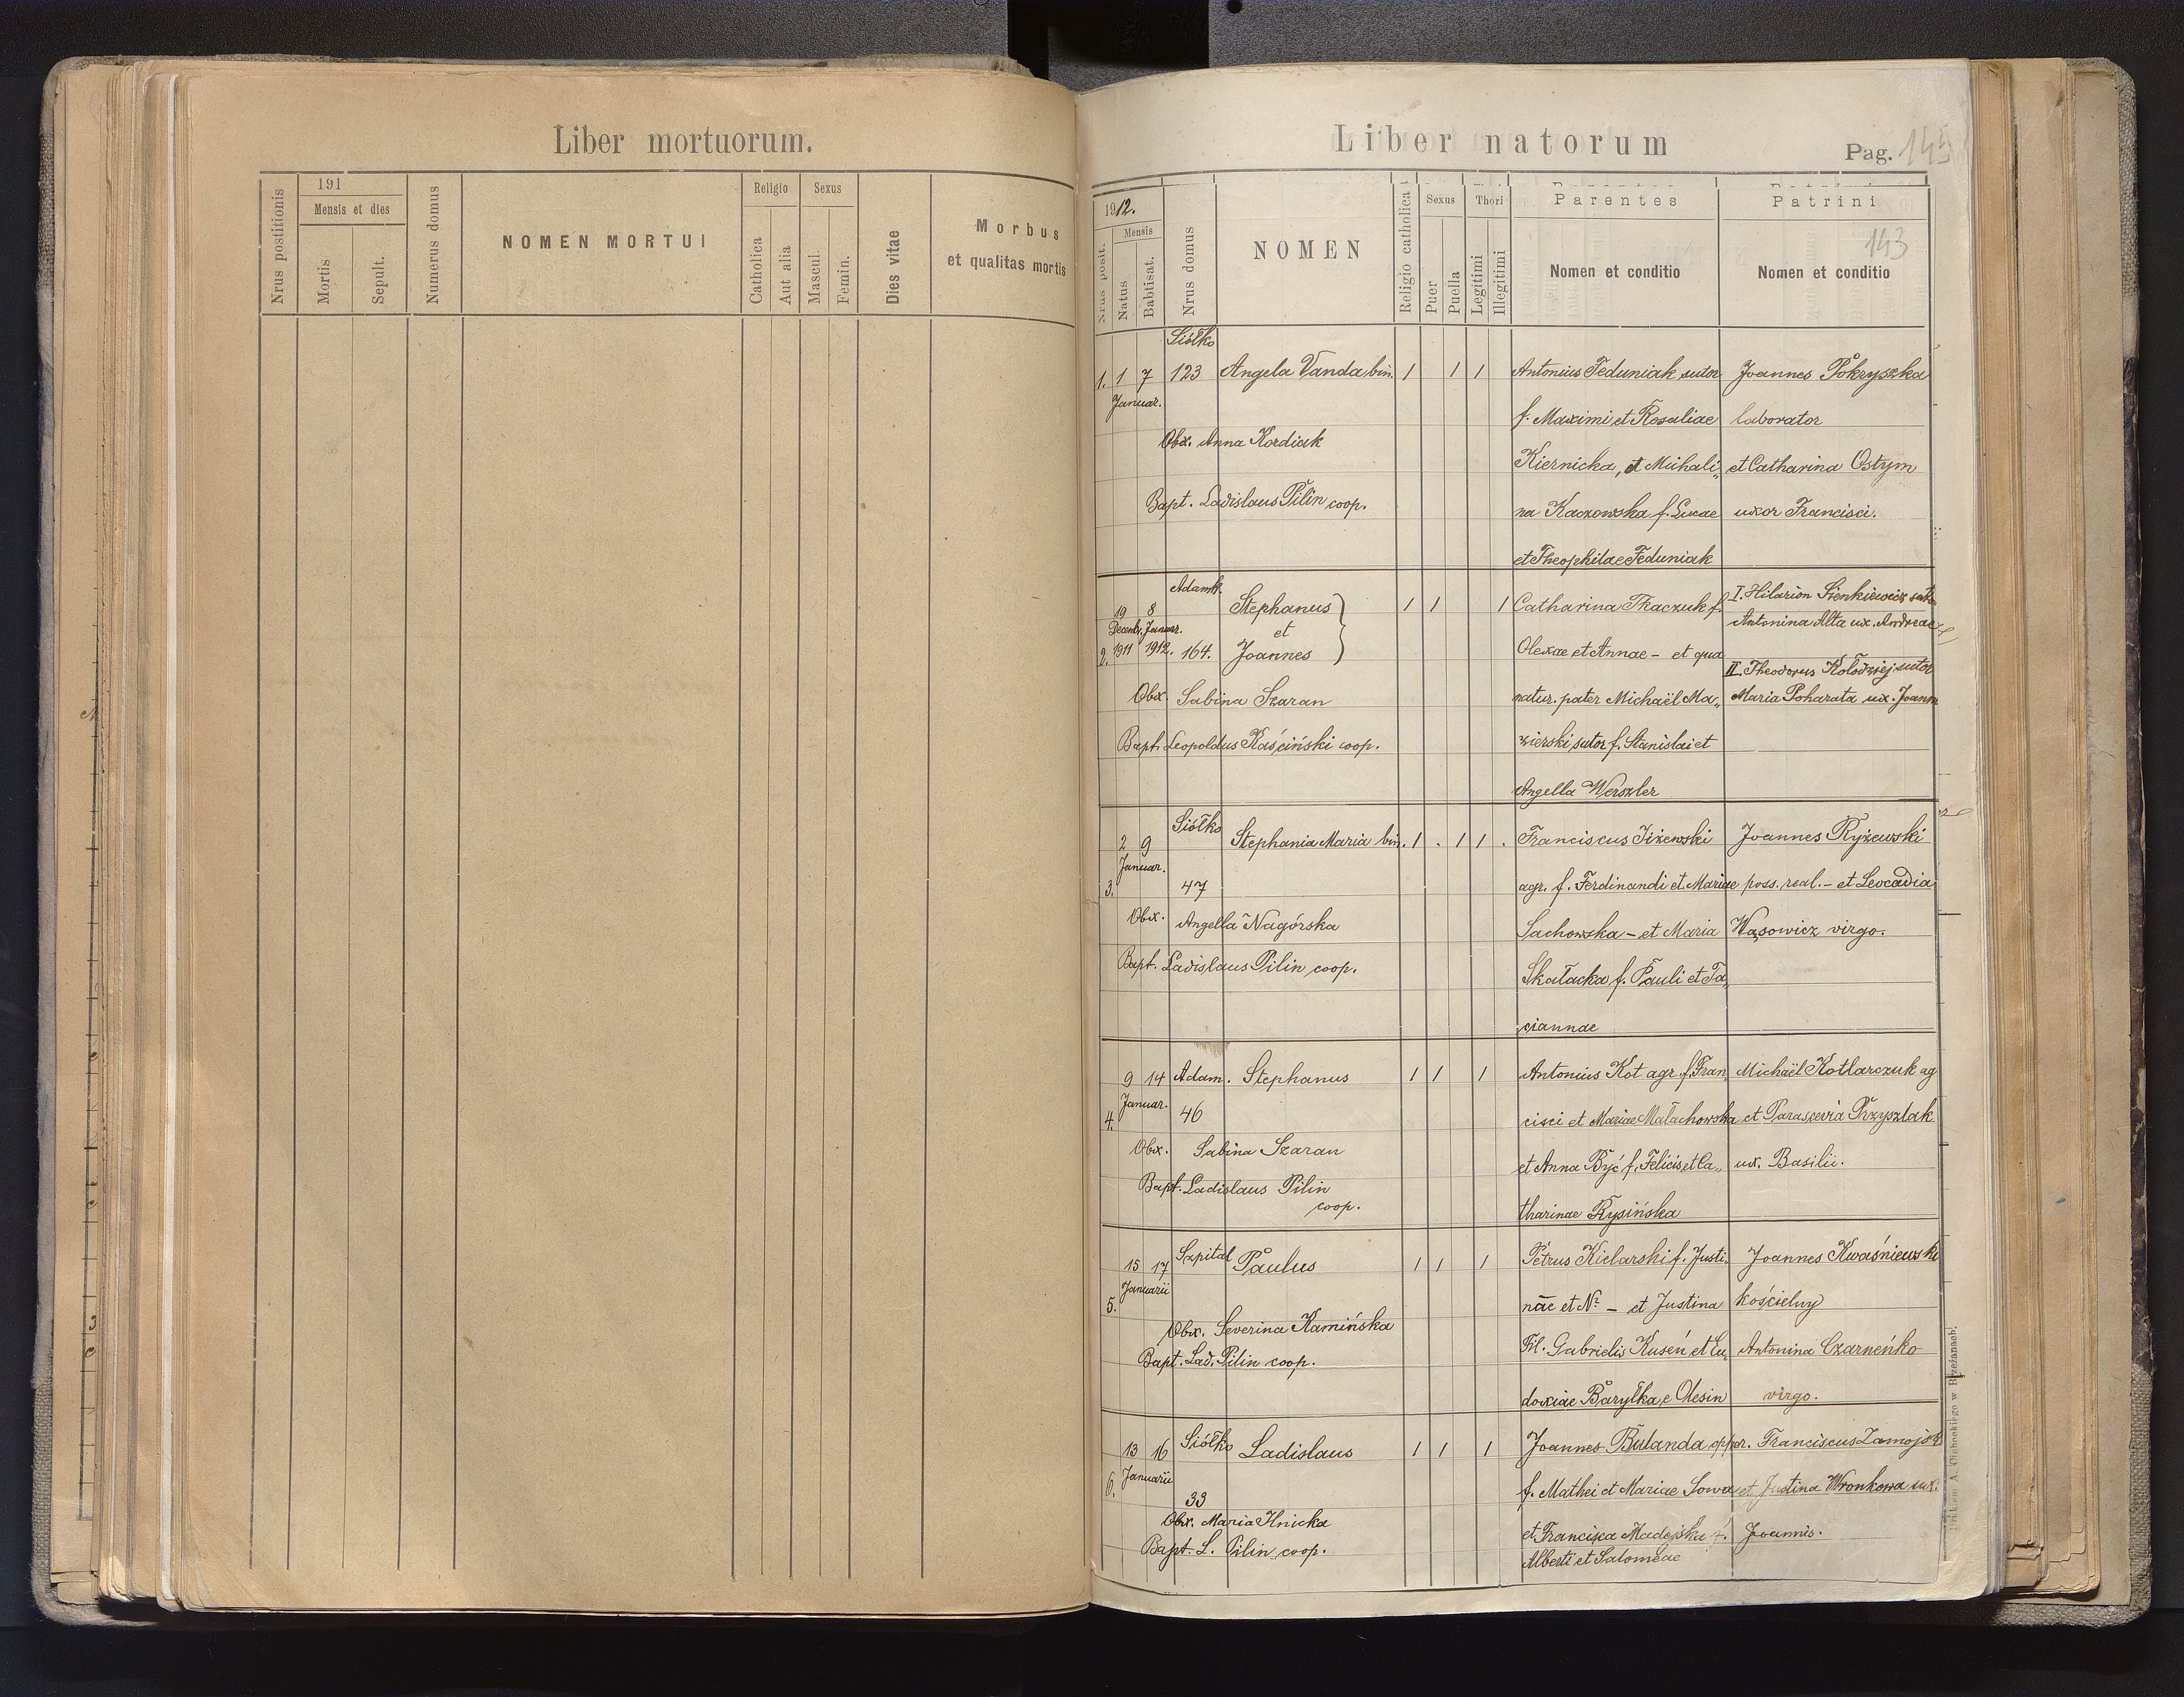 Liber mortuorum.
Nrus postitionis
191
Mensis et dies
Mortis
Sepult.
Numerus domus
NOMEN MORTUI
Religio
Catholica
Aut alia
Sexus
Mascul.
Femin.
Dies vitae
Morbus
et qualitas mortis
Liber natorum
Pag. 145
1912.
Nrus posit.
Mensis
Natus
Babtisat.
Nrus domus
NOMEN
Religio catholica
Sexus
Puer
Puella
Thori
Legitimi
Illegitimi
Parentes
Nomen et conditio
Patrini
143
Nomen et conditio
Siółko
1. 1 7 123 Angela Vanda bin. 1 1 1 Antonius Feduniak sutor Joannes Pokryszka
Januar.
f. Maximi et Rosaliae laborator
Obx. Anna Kordiak
Kiernicka, et Michali„ et Catharina Ostym
Bapt. Ladislaus Pilin coop.
na Kaczowska f. Lucae uxor Francisci.
et Theophilae Feduniak
Adamk.
19 8 Stephanus 1 1 1 Catharina Tkaczuk f. I. Hilarion Sienkiewicz sutor
Decemb. Januar. et Antonina Alta ux. Andreae
2. 1911 1912. 164. Joannes Olexae et Annae – et qua
II. Theodorus Kołodziej sutor
Obx. Sabina Szaran natur. pater Michaël Ma„ Maria Poharata ux. Joann
Bapt. Leopoldus Kaściński coop. zierski sutor f. Stanislai et
Angella Werszler
Siółko
2 9 Stephania Maria bin. 1 . 1 1 . Franciscus Jiżewski Joannes Ryżewski
Januar.
3. 47 agr. f. Ferdinandi et Mariae poss. real. – et Leocadia
Obx. Angella Nagórska Sachowska – et Maria Wąsowicz virgo.
Bapt. Ladislaus Pilin coop. Skałacka f. Pauli et Ta„
ciannae
9 14 Adam. Stephanus 1 1 1 Antonius Kot agr. f. Fran„ Michaël Kotlarczuk ag
Januar.
4. 46 cisci et Mariae Małachowska et Parascevia Przyszlak
Obx. Sabina Szaran et Anna Być f. Felicis et Ca„ ux. Basilii.
Bapt. Ladislaus Pilin
coop. tharinae Rysińska
15 17 Szpital Paulus 1 1 1 Petrus Kielarski f. Justi„ Joannes Kwaśniewski
Januarii
5. nae et N. – et Justina kościelny
Obx. Severina Kamińska
Fil. Gabrielis Kuseń et Eu„ Antonina Czarneńko
Bapt. Lad. Pilin coop.
doxiae Baryłka, e Olesin virgo.
13 16 Siółko Ladislaus 1 1 1 Joannes Bulanda opper. Franciscus Zamojsk
6. Januarii
33 f. Mathei et Mariae Sowa et Justina Wronkowa ux.
Obx. Maria Ilnicka et Francisca Madejska f. Joannis.
Bapt. L. Pilin coop. Alberti et Salomeae